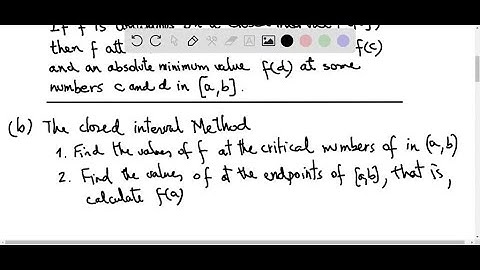 If f is
then f att f(c)
and an absolute minimum value f(d) at some
numbers c and d in [a,b].
(b) The closed interval Method
1. Find the values of f at the critical numbers of in (a,b)
2. Find the values of at the endpoints of [a,b], that is,
calculate f(a)